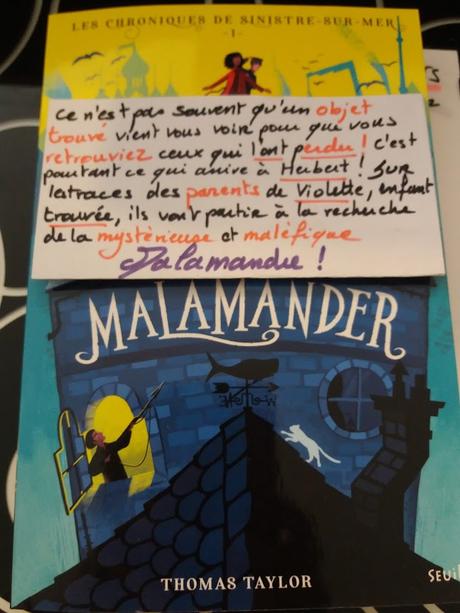 LES CHRONIQUES DE SINISTRE-SUR-MER
-1-
Ce n'est pas souvent qu'un objet
trouvé vient vous voir pour que vous
retrouviez ceux qui l'ont perdu ! C'est
pourtant ce qui arrive à Herbert ! Sur
les traces des parents de Violette, enfant
trouvée, ils vont partir à la recherche
de la mystérieuse et maléfique
Malamandre !
MALAMANDER
THOMAS TAYLOR
SEUIL